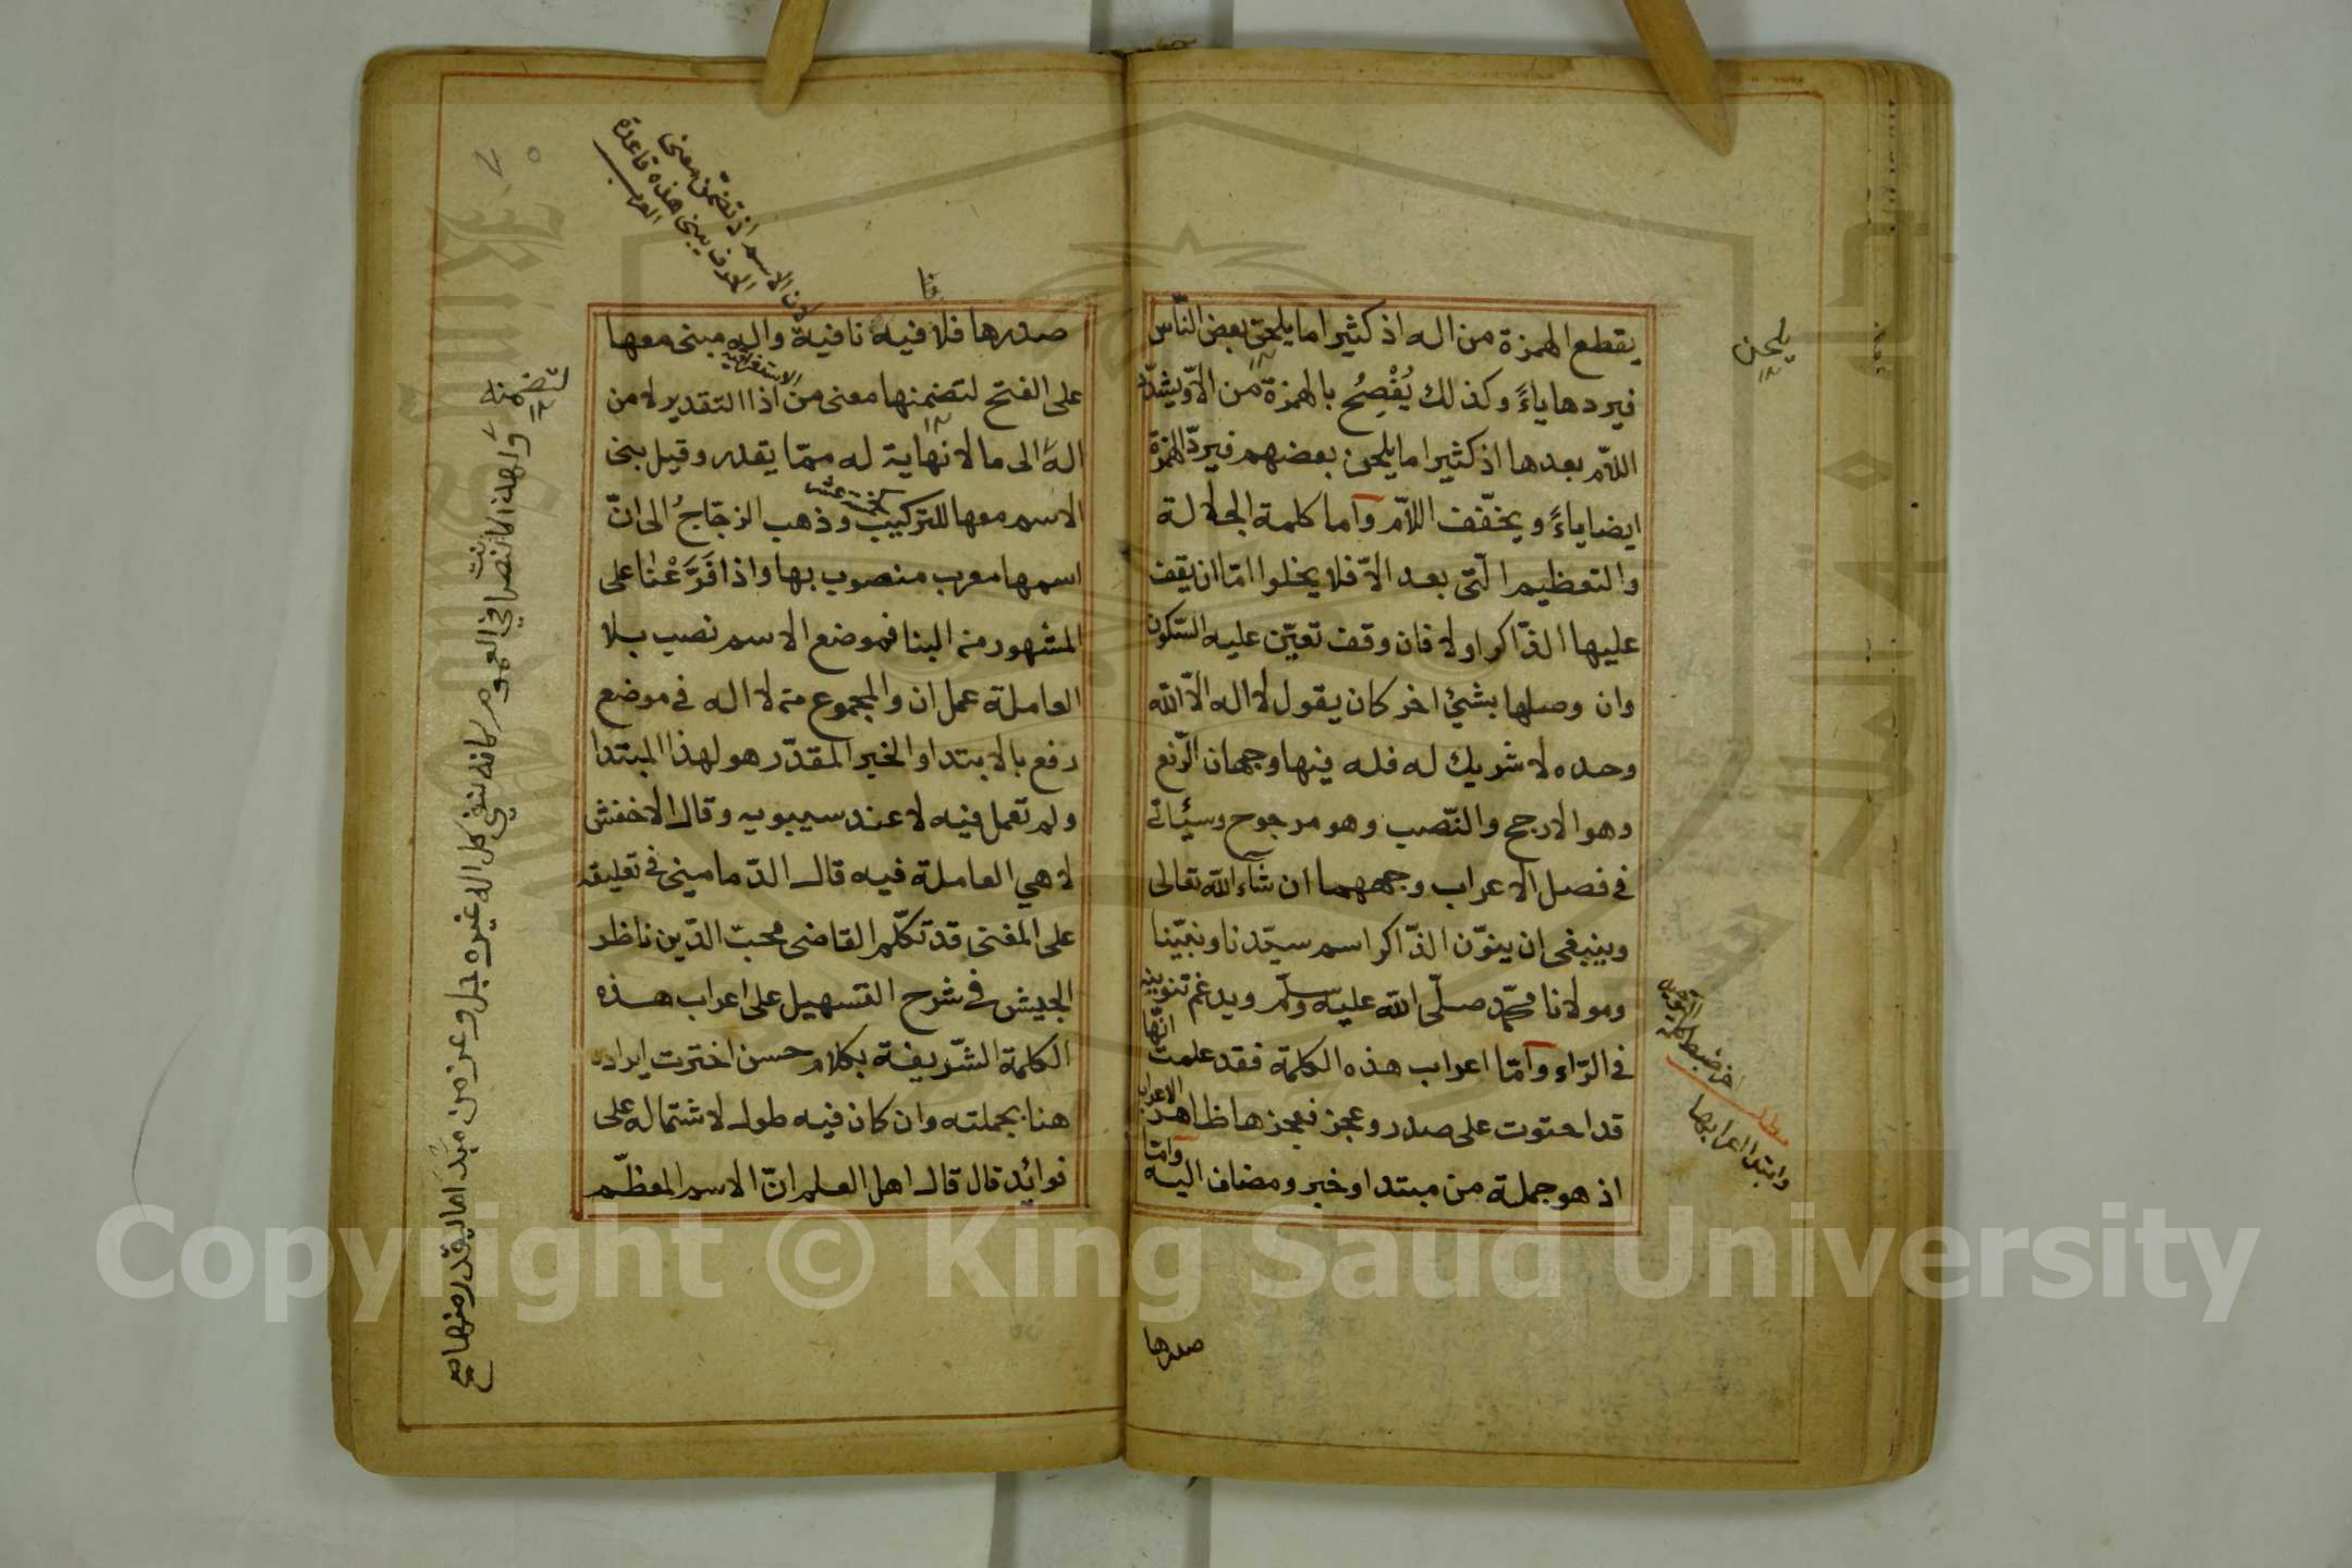 يقطع الهمزة من اله اذ كثيرا ما يلحق بعض الناس
فيردها ياءً وكذلك يُفْصِحُ بالهمزة من الاّ ويشدّد
اللاّم بعدها اذ كثيرا ما يلحن بعضهم فيردّ الهمزة
ايضا ياءً ويخفّف اللاّم وأما كلمة الجلالة
والتعظيم الّتى بعد الاّ فلا يخلوا امّا ان يقف
عليها الذّاكر او لا فان وقف تعيّن عليه السّكون
وان وصلها بشئ اخر كان يقول لا اله الاّ الله
وحده لا شريك له فله فيها وجهان الرّفع
وهو الارجح والنّصب وهو مرجوح وسيأتى
فى فصل الاعراب وجههما ان شاء الله تعالى
وينبغى ان ينوّن الذّاكر اسم سيّدنا ونبيّنا
ومولانا محمّد صلّى الله عليه وسلّم ويدغم تنوينه
فى الرّاء وأمّا اعراب هذه الكلمة فقد علمت انّها
قد احتوت على صدر وعجز فعجزها ظاهر الاعراب
اذ هو جملة من مبتدا وخبر ومضاف اليه وامّا
صدرها
يلحن
اخر ضبط
مطلب
وابتدا اعرابها
صدرها فلا فيه نافية واله مبنى معها
على الفتح لتضمنها معنى من اذ التقدير لا من
الهٍ الى ما لا نهاية له ممّا يقدر وقيل بنى
الاسم معها للتركيب وذهب الزجّاجُ الى انّ
اسمها معرب منصوب بها واذا فَرَّعْنا على
المشهور من البنا فموضع الاسم نصب بلا
العاملة عمل ان والمجموع من لا اله فى موضع
رفع بالابتدا والخبر المقدّر هو لهذا المبتدا
ولم تعمل فيه لا عند سيبويه وقال الاخفش
لا هي العاملة فيه قال الدّمامينى فى تعليقه
على المغنى قد تكلّم القاضى محبّ الدّين ناظر
الجيش فى شرح التسهيل على اعراب هذه
الكلمة الشّريفة بكلام حسن اخترت ايراده
هنا بجملته وان كان فيه طول لاشتماله على
فوائد قال قال اهل العلم انّ الاسم المعظّم
الاستغراقية
لان الاسم اذ تضمّن معنى
الحرف يبنى هذه قاعدة
العرب
لتضمنه
ولهذا كانت نصا في العموم كانه نفي كل اله غيره جل وعز من مَبْدَا ما يقدر منها صح